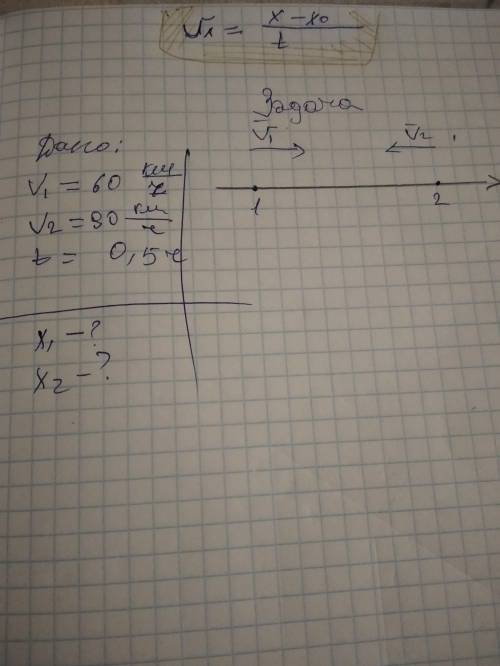 Vx = x – x₀ / t
Задача
Дано:
V₁ = 60 км/ч
V₂ = 90 км/ч
t = 0,5 ч
x₁ – ?
x₂ – ?
V̄₁
V̄₂
1
2